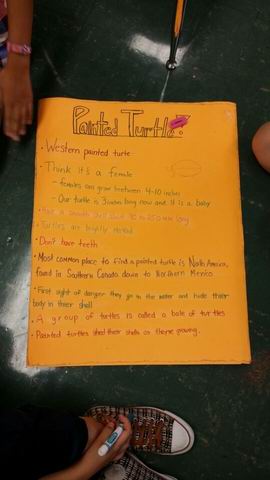 Painted Turtle
• Western painted turtle
- Think it's a female
- females can grow between 4-10 inches
- Our turtle is 3 inches long now and it is a baby
• Have a smooth shell about 90 to 250 mm long
• Turtles are highly
• Don't have teeth
• Most common place to find a painted turtle is North America,
found in Southern Canada down to Northern Mexico
• First sight of danger they go in the water and hide their
body in thier shell
• A group of turtles is called a bale of turtles
• Painted turtles shed their shells as theme growing.